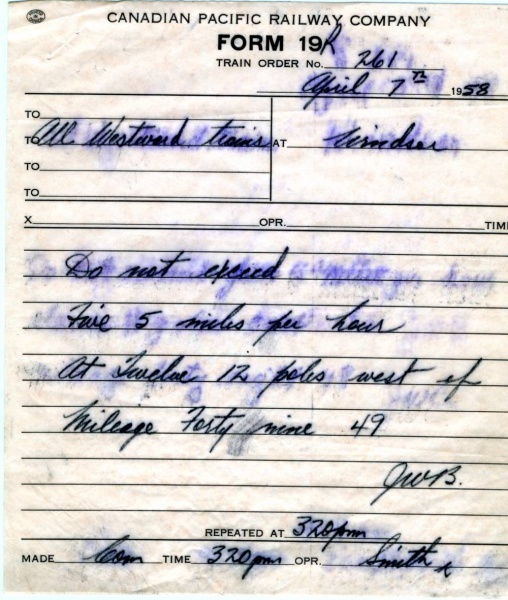 CANADIAN PACIFIC RAILWAY COMPANY
FORM 19R
TRAIN ORDER No. 261
April 7th 1958
TO
TO All Westward trains AT Windsor
TO
TO
X OPR. TIME
Do not exceed
Five 5 miles per hour
At Twelve 12 poles west of
Mileage Forty nine 49
JWB.
REPEATED AT 320pm
MADE Com TIME 320pm OPR. Smith